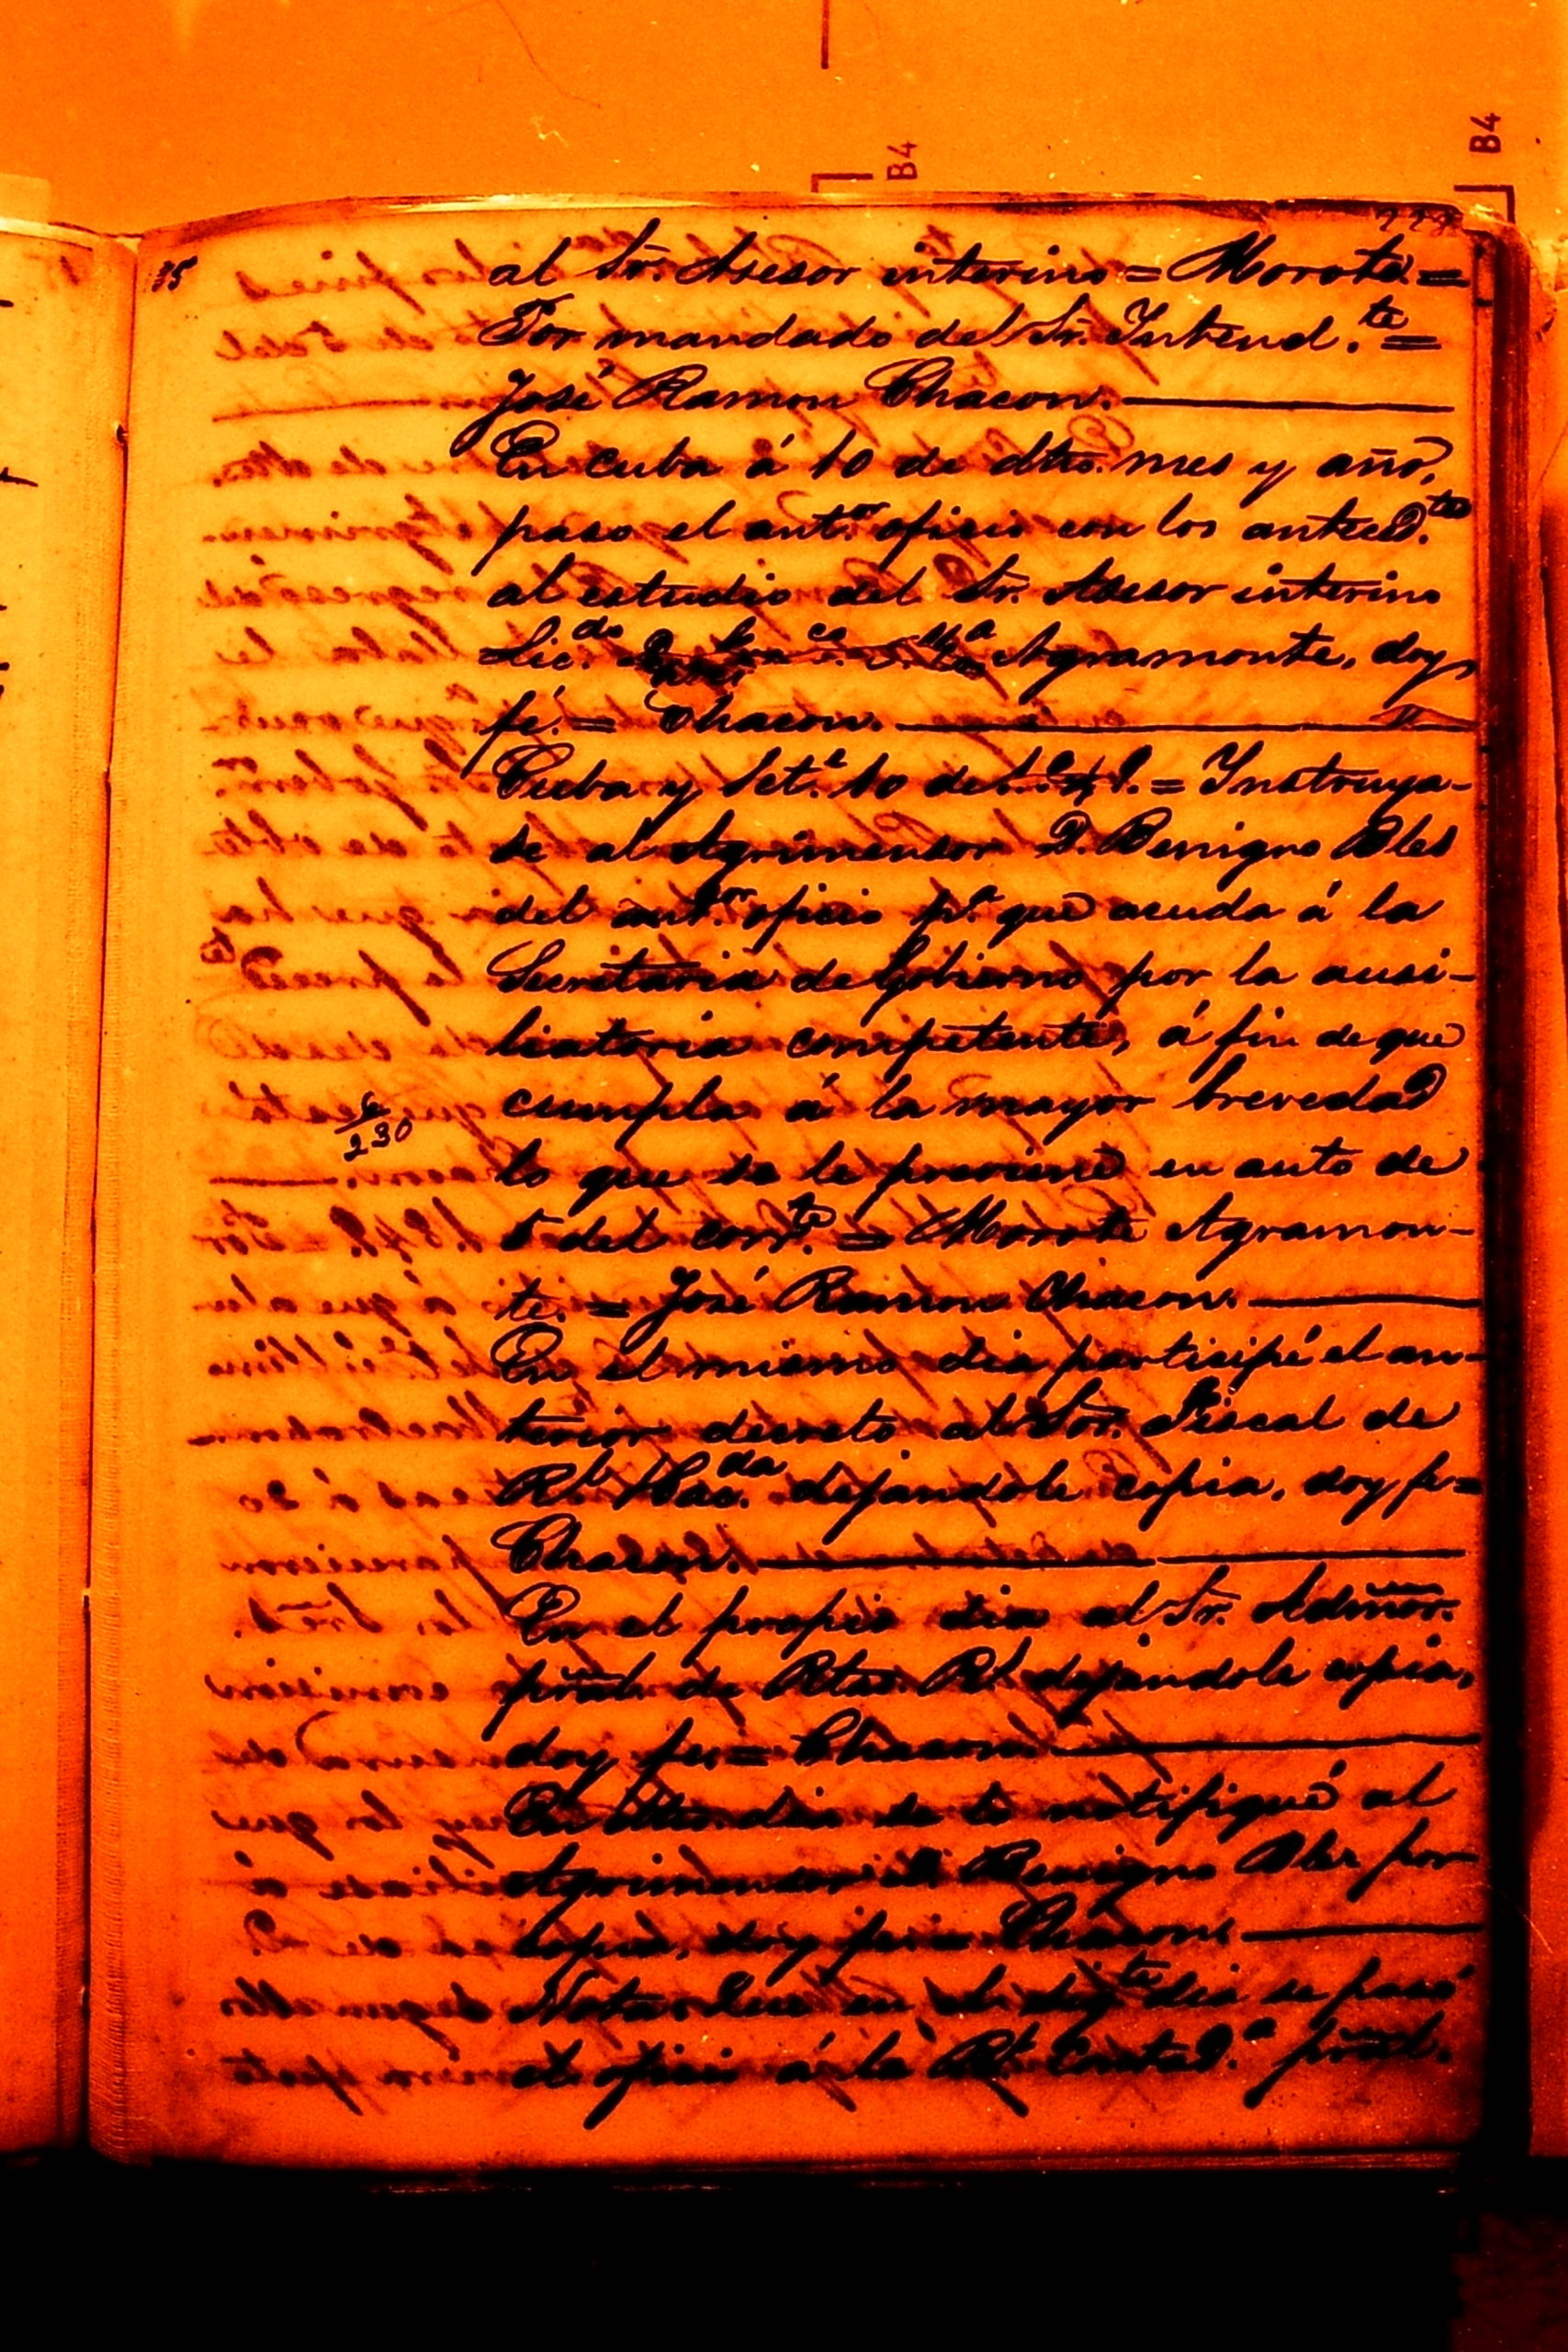 B4
B4
85
al Sr. Asesor interino = Morote =
Por mandado del Sr. Yntend.te =
José Ramon Chacon.
En cuba á 10 de dho. mes y año,
paso el ant.or oficio con los anteced.tes
al estudio del Sr. Asesor interino
Lic.do Agramonte, doy
fé. = Chacon.
Cuba y Set.e 10 de = Instruya-
se al Agrimensor D. Benigno Bles
del ant.or oficio p.a que acuda á la
Secretaria de Gobierno por la ausi-
liatoria competente, á fin de que
cumpla á la mayor brevedad
6
230
lo que se le previene en auto de
5 del corr.te = Morote Agramon-
te. = José Ramon Chacon.
En el mismo dia participé el an-
terior decreto al Sor. Fiscal de
Rl. Hac.da dejandole copia, doy fe =
Chacon.
En el propio dia al Sr. Admor.
pral. de Rtas. Rs. dejandole copia,
doy fe = Chacon.
En dho. dia se lo notifiqué al
Agrimensor D. Benigno Bles por
copia, doy fe = Chacon.
Nota = Que en el sig.te dia se pasó
el oficio á la Rl. Contad.a pral.